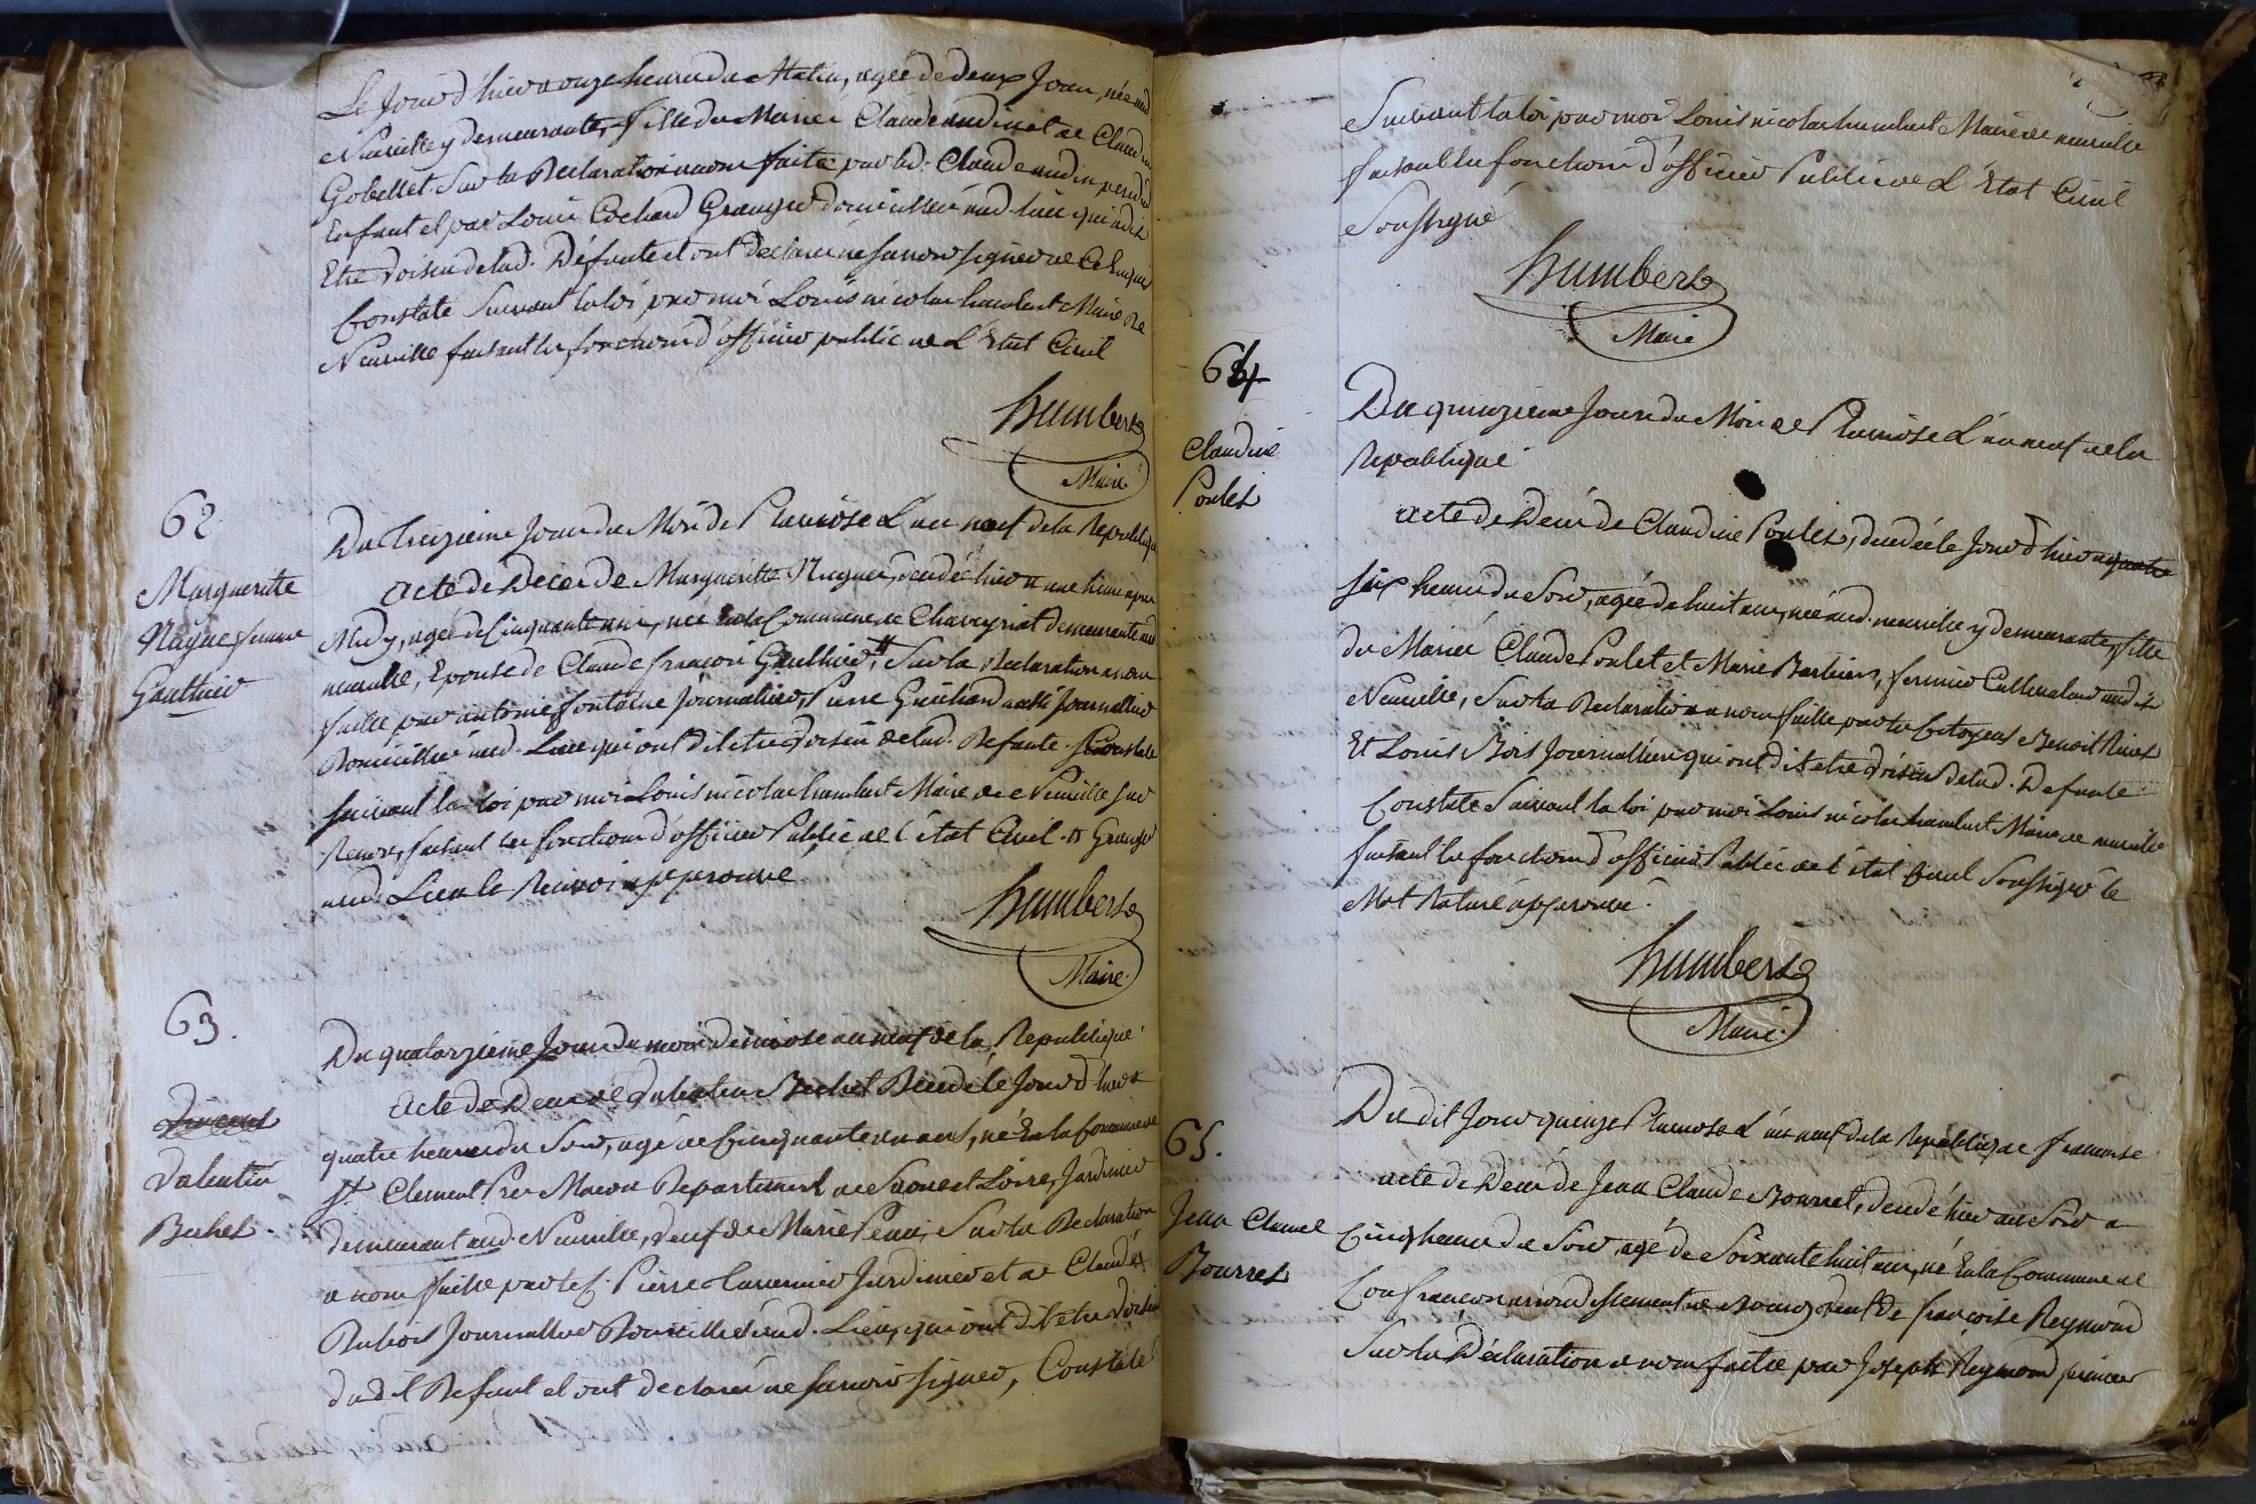 Le Jour d'hier a onze heures du Matin, agée de deux Jours, née aud
Neuville y demeurante, fille du Mariée Claude audin et de Claudine
Gobellet. Sur la Declaration a nous faite par led. Claude audin pere dud
Enfant et par Louis Cochard Granger domicillié aud. lieu qui a dit
Etre voisin de lad. Défunte et ont declaré ne savoir signer de Ce Enquis
Constaté suivant la loi par moi Louis nicolas humbert Maire de
Neuville faisant les fonctions d'officier public de L'Etat Civil
humbert
Maire
62
Margueritte
Nayne femme
Gauthier
Du treizieme Jour du Mois de Pluviose L'an neuf de la Republique
acte de Deces de Margueritte decedée hier a une heure apres
Midy, agée de Cinquante ans, née en la Commune de Chaveyriat demeurante aud
neuville, Epouse de Claude françois Gauthier # Sur la Declaration a nous
faitte par antoine fontaine Journallier, Pierre Guichard aussi Journallier
Domicilliés aud. Lieu qui ont dit etre voisin de lad. Defunte. Constaté
suivant la loi par moi Louis nicolas humbert Maire de Neuville sur
Renon, faisant les fonctions d'officier Public de l'état Civil. # Granger
aud. Lieu le Renvoi approuvé
humbert
Maire.
63.
Valentin
Bechet.
Du quatorzieme Jour du mois de an neuf de la Republique
acte de Deces de Valentin Bechet Decedé le Jour d'hier a
quatre heures du Soir, agé de Cinquante un ans, né En la Commune de
St Clement Pres Macon Departement de Saone et Loire, Jardinier
demeurant aud. Neuville, veuf de Marie Sur la Declaration
a nous faitte par le C. Pierre Tavernier Jardinier et de Claude
Dubois Journallier Domicilliés aud. Lieu, qui ont dit etre voisin
dudit Defunt et ont declaré ne savoir signer, Constaté
Suivant la loi par moi Louis nicolas humbert Maire de neuville
faisant les fonctions d'officier Public de L'Etat Civil
Soussigné
humbert
Maire
64
Claudine
Poulet
Du quinzieme Jour du Mois de Pluviose L'an neuf de la
Republique
acte de Deces de Claudine Poulet, decedée le Jour d'hier a quatre
six heures du Soir, agée de huit ans, née aud. neuville y demeurante, fille
du Mariée Claude Poulet et Marie Barbier, fermier Cultivateur audit
Neuville, Sur la Declaration a nous faitte par les Citoyens Benoit
Et Louis Bois Journalliers qui ont dit etre voisin de lad. Defunte
Constaté Suivant la loi par moi Louis nicolas humbert Maire de neuville
faisant les fonctions d'officier Public de l'état Civil Soussigné le
Mot Raturé approuvé.
humbert
Maire.
65.
Jean Claude
Bourret
Du dit Jour quinze Pluviose L'an neuf de la Republique francaise
acte de Deces de Jean Claude Bourret, decedé hier au Soir a
Cinq heures du Soir, agé de Soixante huit ans, né En la Commune de
Confrançon arrondissement de Bourg veuf de françoise Reymond
Sur la Déclaration a nous faitte par Joseph Reymond